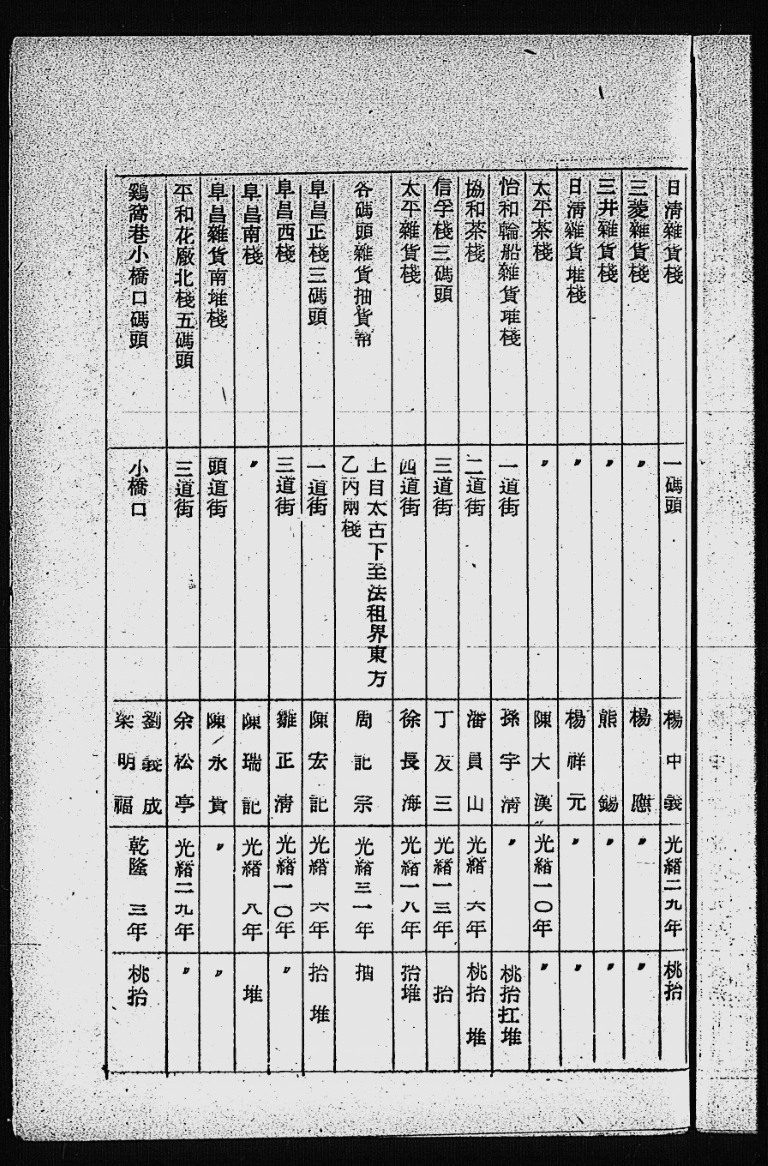 日淸雜貨棧 一碼頭 楊中義 光緖二九年 桃抬
三菱雜貨棧 〃 楊應 〃 〃
三井雜貨棧 〃 熊錫 〃 〃
日淸雜貨堆棧 〃 楊祥元 〃 〃
太平茶棧 〃 陳大漢 光緖一〇年 〃
怡和輪船雜貨堆棧 一道街 孫宇淸 〃 桃抬扛堆
協和茶棧 二道街 潘員山 光緖六年 桃抬堆
信孚棧三碼頭 三道街 丁友三 光緖一三年 抬
太平雜貨棧 四道街 徐長海 光緖一八年 抬堆
各碼頭雜貨抽貨幇 上目太古下至法租界東方 周記宗 光緖三一年
乙丙兩棧
阜昌正棧三碼頭 一道街 陳宏記 光緖六年 抬堆
阜昌西棧 三道街 雛正淸 光緖一〇年 〃
阜昌南棧 〃 陳瑞記 光緖八年 堆
阜昌雜貨南堆棧 頭道街 陳永貴 〃 〃
平和花廠北棧五碼頭 三道街 余松亭 光緖二九年 〃
鷄窩巷小橋口碼頭 小橋口 劉義成 乾隆三年 桃抬
梁明福